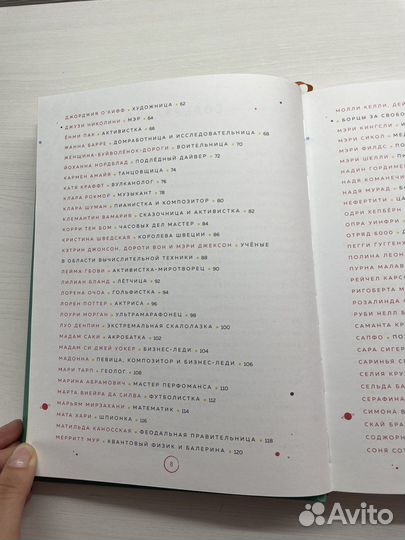 ДЖОРДЖИЯ О'КИФФ • ХУДОЖНИЦА • 62
ДЖУЗИ НИКОЛИНИ • МЭР • 64
ЁНМИ ПАК • АКТИВИСТКА • 66
ЖАННА БАРРЕ • ДОМРАБОТНИЦА И ИССЛЕДОВАТЕЛЬНИЦА • 68
ЖЕНЩИНА-БУЙВОЛЁНОК-ДОРОГИ • ВОИТЕЛЬНИЦА • 70
ЙОХАННА НОРДБЛАД • ПОДЛЁДНЫЙ ДАЙВЕР • 72
КАРМЕН АМАЙЯ • ТАНЦОВЩИЦА • 74
КАТЯ КРАФФТ • ВУЛКАНОЛОГ • 76
КЛАРА РОКМОР • МУЗЫКАНТ • 78
КЛАРА ШУМАН • ПИАНИСТКА И КОМПОЗИТОР • 80
КЛЕМАНТИН ВАМАРИЯ • СКАЗОЧНИЦА И АКТИВИСТКА • 82
КОРРИ ТЕН БОМ • ЧАСОВЫХ ДЕЛ МАСТЕР • 84
КРИСТИНА ШВЕДСКАЯ • КОРОЛЕВА ШВЕЦИИ • 86
КЭТРИН ДЖОНСОН, ДОРОТИ ВОН И МЭРИ ДЖЕКСОН • УЧЁНЫЕ
В ОБЛАСТИ ВЫЧИСЛИТЕЛЬНОЙ ТЕХНИКИ • 88
ЛЕЙМА ГБОВИ • АКТИВИСТКА-МИРОТВОРЕЦ • 90
ЛИЛИАН БЛАНД • ЛЁТЧИЦА • 92
ЛОРЕНА ОЧОА • ГОЛЬФИСТКА • 94
ЛОРЕН ПОТТЕР • АКТРИСА • 96
ЛОУРИ МОРГАН • УЛЬТРАМАРАФОНЕЦ • 98
ЛУО ДЕНПИН • ЭКСТРЕМАЛЬНАЯ СКАЛОЛАЗКА • 100
МАДАМ САКИ • АКРОБАТКА • 102
МАДАМ СИ ДЖЕЙ УОКЕР • БИЗНЕС-ЛЕДИ • 104
МАДОННА • ПЕВИЦА, КОМПОЗИТОР И БИЗНЕС-ЛЕДИ • 106
МАРИ ТАРП • ГЕОЛОГ • 108
МАРИНА АБРАМОВИЧ • МАСТЕР ПЕРФОМАНСА • 110
МАРТА ВИЕЙРА ДА СИЛВА • ФУТБОЛИСТКА • 112
МАРЬЯМ МИРЗАХАНИ • МАТЕМАТИК • 114
МАТА ХАРИ • ШПИОНКА • 116
МАТИЛЬДА КАНОССКАЯ • ФЕОДАЛЬНАЯ ПРАВИТЕЛЬНИЦА • 118
МЕРРИТТ МУР • КВАНТОВЫЙ ФИЗИК И БАЛЕРИНА • 120
8
МОЛЛИ КЕЛЛИ, ДЕЙ
БОРЦЫ ЗА СВОБО
МЭРИ КИНГСЛИ •
МЭРИ СИКОЛ • МЕД
МЭРИ ФИЛДС • ПО
МЭРИ ШЕЛЛИ • ПИ
НАДИН ГОРДИМЕР
НАДЯ КОМАНЕЧИ
НАДЯ МУРАД •
НЕФЕРТИТИ •
ОДРИ ХЕПБЁРН
ОПРА УИНФРИ •
ОТРЯД 6000 •
ПЕГГИ ГУГГЕНХ
ПОЛИНА ЛЕОН
ПУРНА МАЛАВ
РЕЙЧЕЛ КАРС
РИГОБЕРТА М
РОЗАЛИНДА
РУБИ НЕЛЛ Б
САМАНТА К
САПФО •
САРА СИГЕР
САРИНЬЯ С
СЕЛИЯ КРУ
СЕЛЬДА БА
СЕРАФИНА
СИМОНА В
СКАЙ БРА
СОДЖОРН
СОНЯ СОТ
Avito